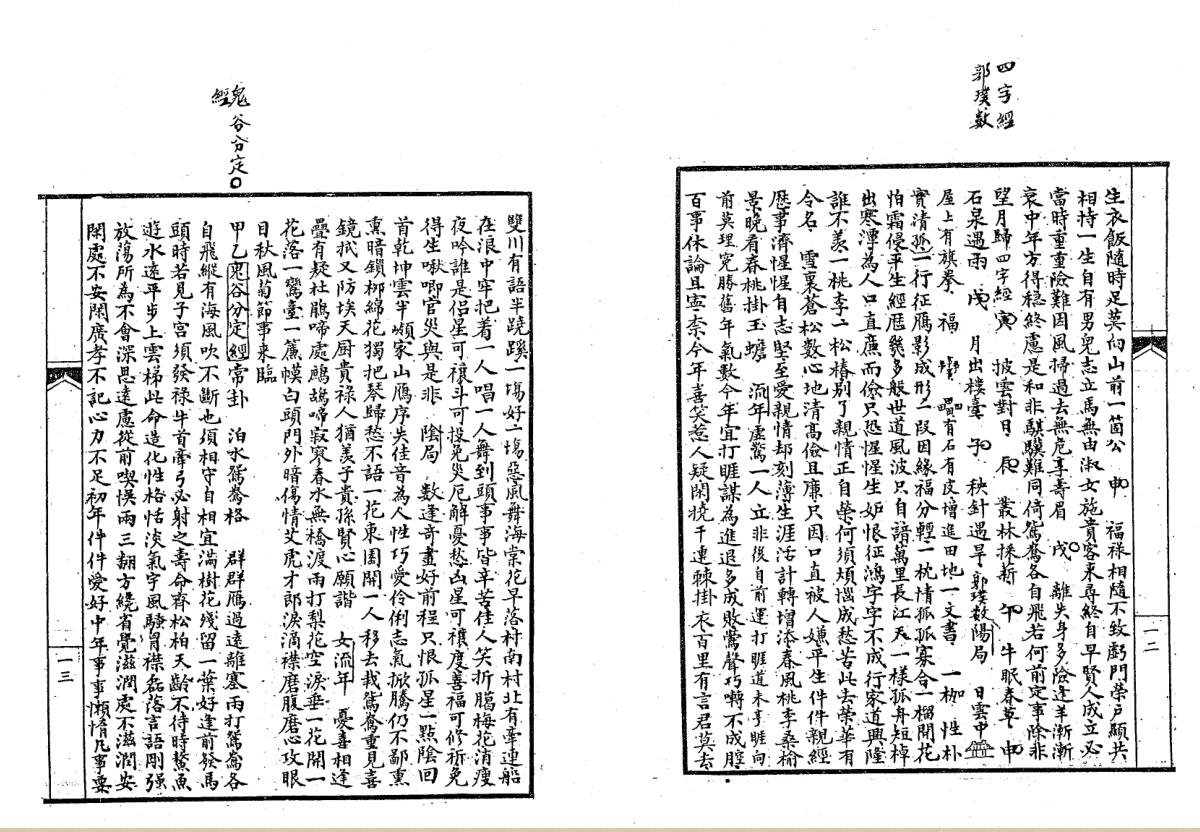 四字經
郭璞數
生衣飯隨時足莫向山前一箇公 申 福祿相隨不致虧門榮戶顯共
相持一生自有男兒志立馬無由淑女施貴客來尋終自早賢人成立必
當時重重險難因風掃過去無危享壽眉 戌 離失身多險逢羊漸漸
衰中年方得穩終慮是和非騏驥難同倚鴛鴦各自飛若何前定事除非
望月歸四字經寅 披雲對月 辰 叢林採薪 午 牛眠春草 申
石泉遇雨 戌 月出樓臺 子 秧針遇旱郭璞數陽局 日雲中
屋上有旗拳 福 有石有皮增進田地一文書 一枷 性朴
實清一行征雁影成形二段因緣福分輕一枕情孤孤寡合一榴開花
怕霜侵平生經歷幾多般世道風波只自語萬里長江天一樣孤舟短棹
出寒潭為人口直廉而儉只恐惺惺生妒恨征鴻字字不成行家道興隆
誰不羨一桃李二松椿別了親情正自榮何須煩惱成愁苦此去榮華有
令名 雪裏蒼松數心地清高儉且廉只因口直被人嫌平生件件親經
歷事濟惺惺自有志堅至愛親情却刻薄生涯活計轉增添春風桃李桑榆
景晚看春桃掛玉蟾 流年虛驚一人立非後自前運打睚道未亨睚向
前莫理冤勝舊年氣數今年宜打睚謀為進退多成敗鶯聲巧囀不成腔
百事休論且寧奈今年喜笑惹人疑閑撓千連棘掛衣百里有言君莫去
一二
鬼谷分定
經
雙川有語半蹺蹊一塲好二塲惡風舞海棠花早落村南村北有牽連船
在浪中牢把着一人唱一人舞到頭事事皆辛苦佳人笑折臈梅花清瘦
夜吟誰是侶星可禳斗可投免災厄解憂愁凶星可禳度善福可修祈免
得生啾唧官災與是非 陰局 數逢奇畫好前程只恨孤星一點陰回
首乾坤雲半嬾家山雁序失佳音為人性巧愛伶俐志氣掀騰仍不鄙熏
熏暗鎖柳綿花獨把琴歸愁不語一花東園開一人移去栽鴛鴦重見喜
鏡拭又防埃天厨貴祿人猶羨子貴孫賢心願諧 女流年 憂喜相逢
疊有疑杜鵑啼處鷓鴣啼寂寂春水無橋渡雨打梨花空淚垂一花開一
花落一鸞臺一簾幙白頭門外暗傷情艾虎才郎淚滴襟磨腹磨心攻眼
目秋風菊節事來臨
甲乙鬼谷分定經常卦 泊水鴛鴦格 群群雁過遠離塞雨打鴛鴦各
自飛縱有海風吹不斷也須相守自相宜滿樹花殘留一葉好逢前發馬
頭時若見子宮須發祿牛首牽弓必射之壽命齊松柏天齡不待時鰲魚
遊水遠平步上雲梯此命造化性格恬淡氣宇風騷胃襟磊落言語剛強
放蕩所為不會深思遠慮從前喫悞兩三翻方纔省覺滋潤處不滋潤安
閑處不安閑廣孝不記心力不足初年件件愛好中年事事懶惰凡事要
一三